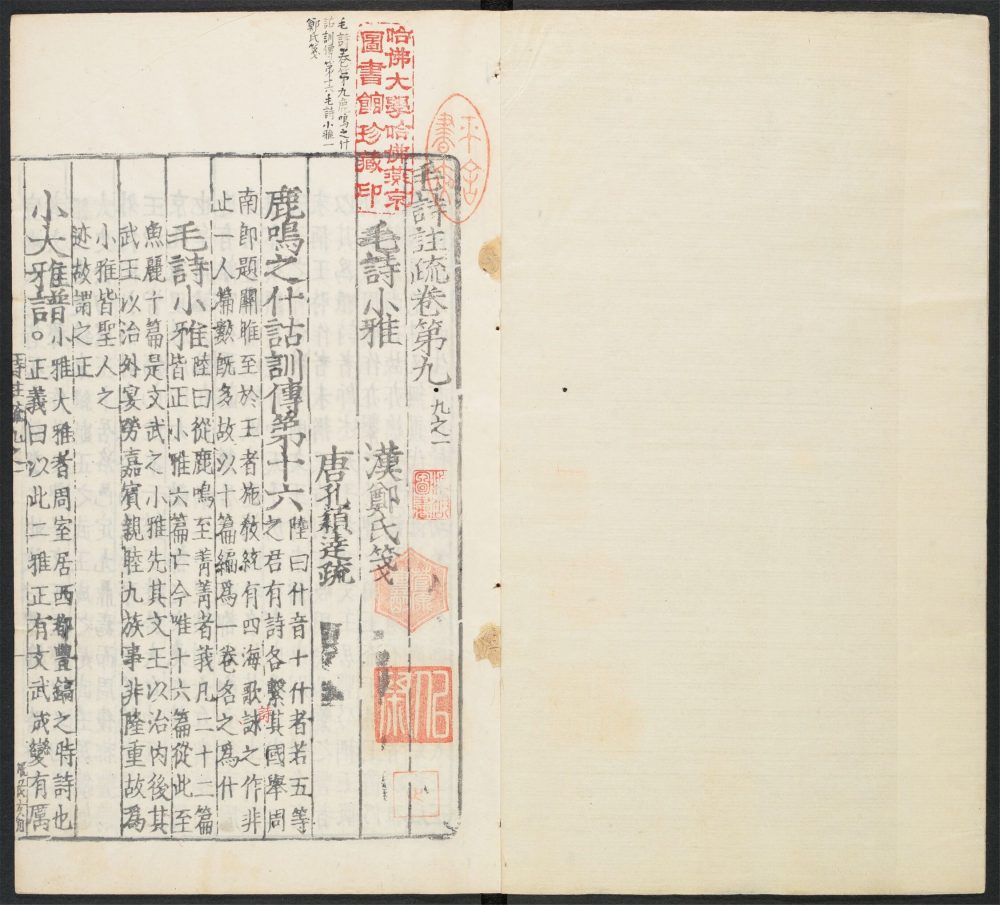 毛詩卷第九鹿鳴之什
詁訓傳第十六毛詩小雅一
鄭氏箋
哈佛大學哈佛燕京
圖書館珍藏印
毛詩註疏卷第九 九之一
毛詩小雅 漢鄭氏箋
唐孔穎達疏
鹿鳴之什詁訓傳第十六 陸曰什音十什者若五等
之君有詩各繫其國舉周
南即題關雎至於王者施敎統有四海歌詠之作非
止一人篇數旣多故以十篇編爲一卷名之爲什
毛詩小雅 陸曰從鹿鳴至菁菁者莪凡二十二篇
皆正小雅六篇亡今唯十六篇從此至
魚麗十篇是文武之小雅先其文王以治內後其
武王以治外宴勞嘉賓親睦九族事非隆重故爲
小雅皆聖人之
迹故謂之正
小大雅譜 小雅大雅者周室居西都豐鎬之時詩也
○正義曰以此二雅正有文武成變有厲